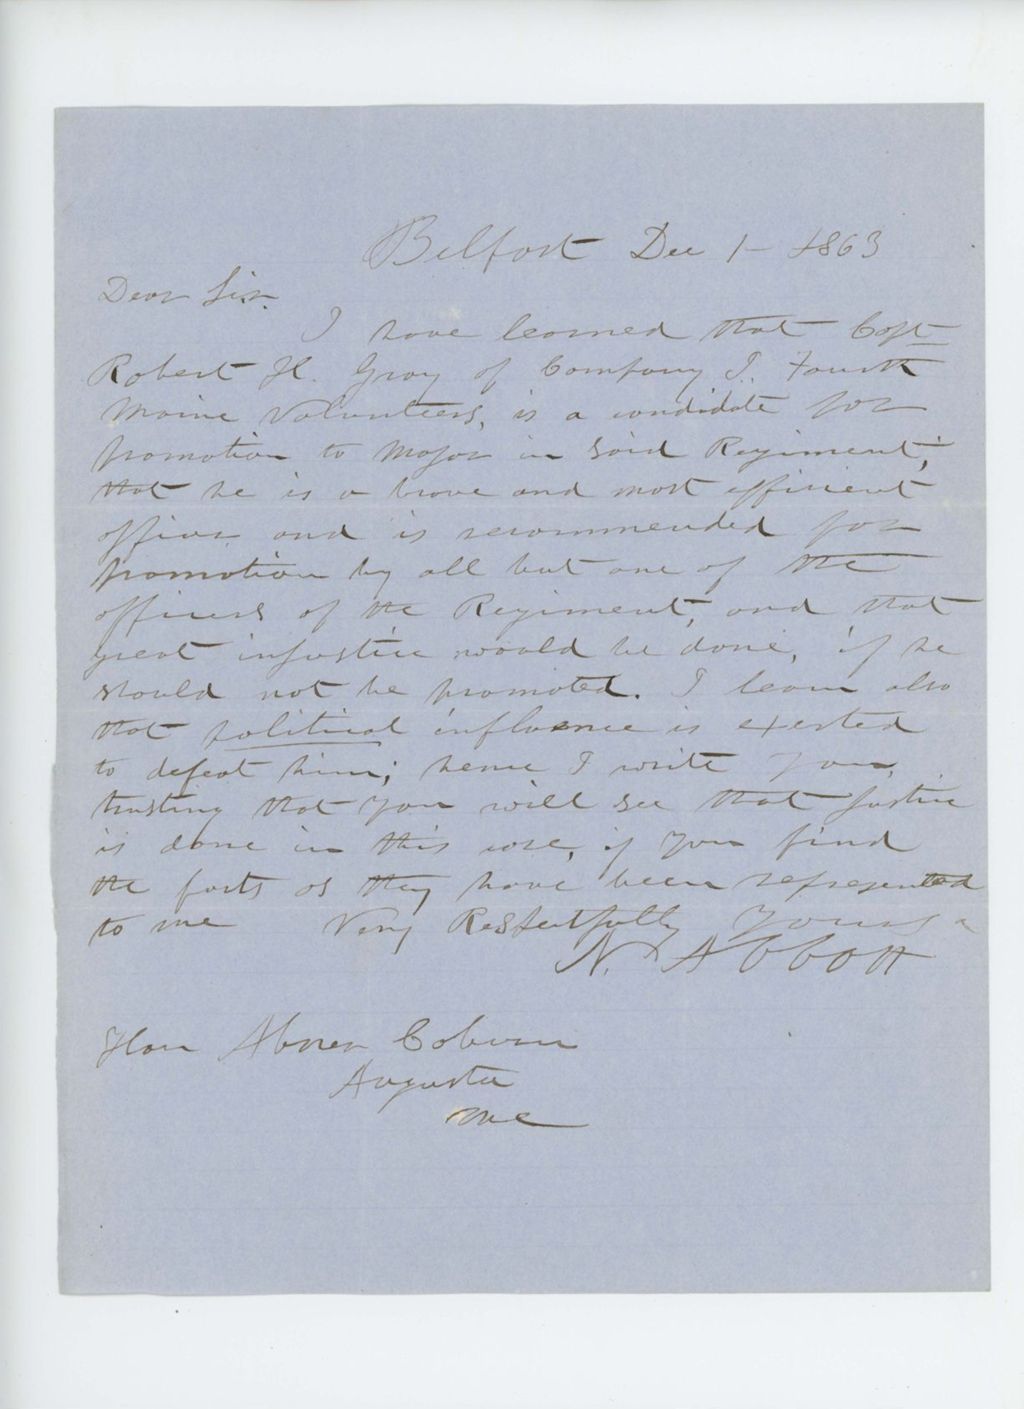 Belfast Dec 1- 1863
Dear Sir.
I have learned that Capt
Robert H. Gray of Company I. Fourth
Maine Volunteers, is a candidate for
promotion to Major in said Regiment;
that he is a brave and most efficient
officer and is recommended for
promotion by all but one of the
officers of the Regiment, and that
great injustice would be done, if he
should not be promoted. I learn also
that political influence is exerted
to defeat him; hence I write you,
trusting that you will see that justice
is done in this case, if you find
the facts as they have been represented
to me Very Respectfully Yours
N. Abbott
Hon Abner Coburn
Augusta
Me